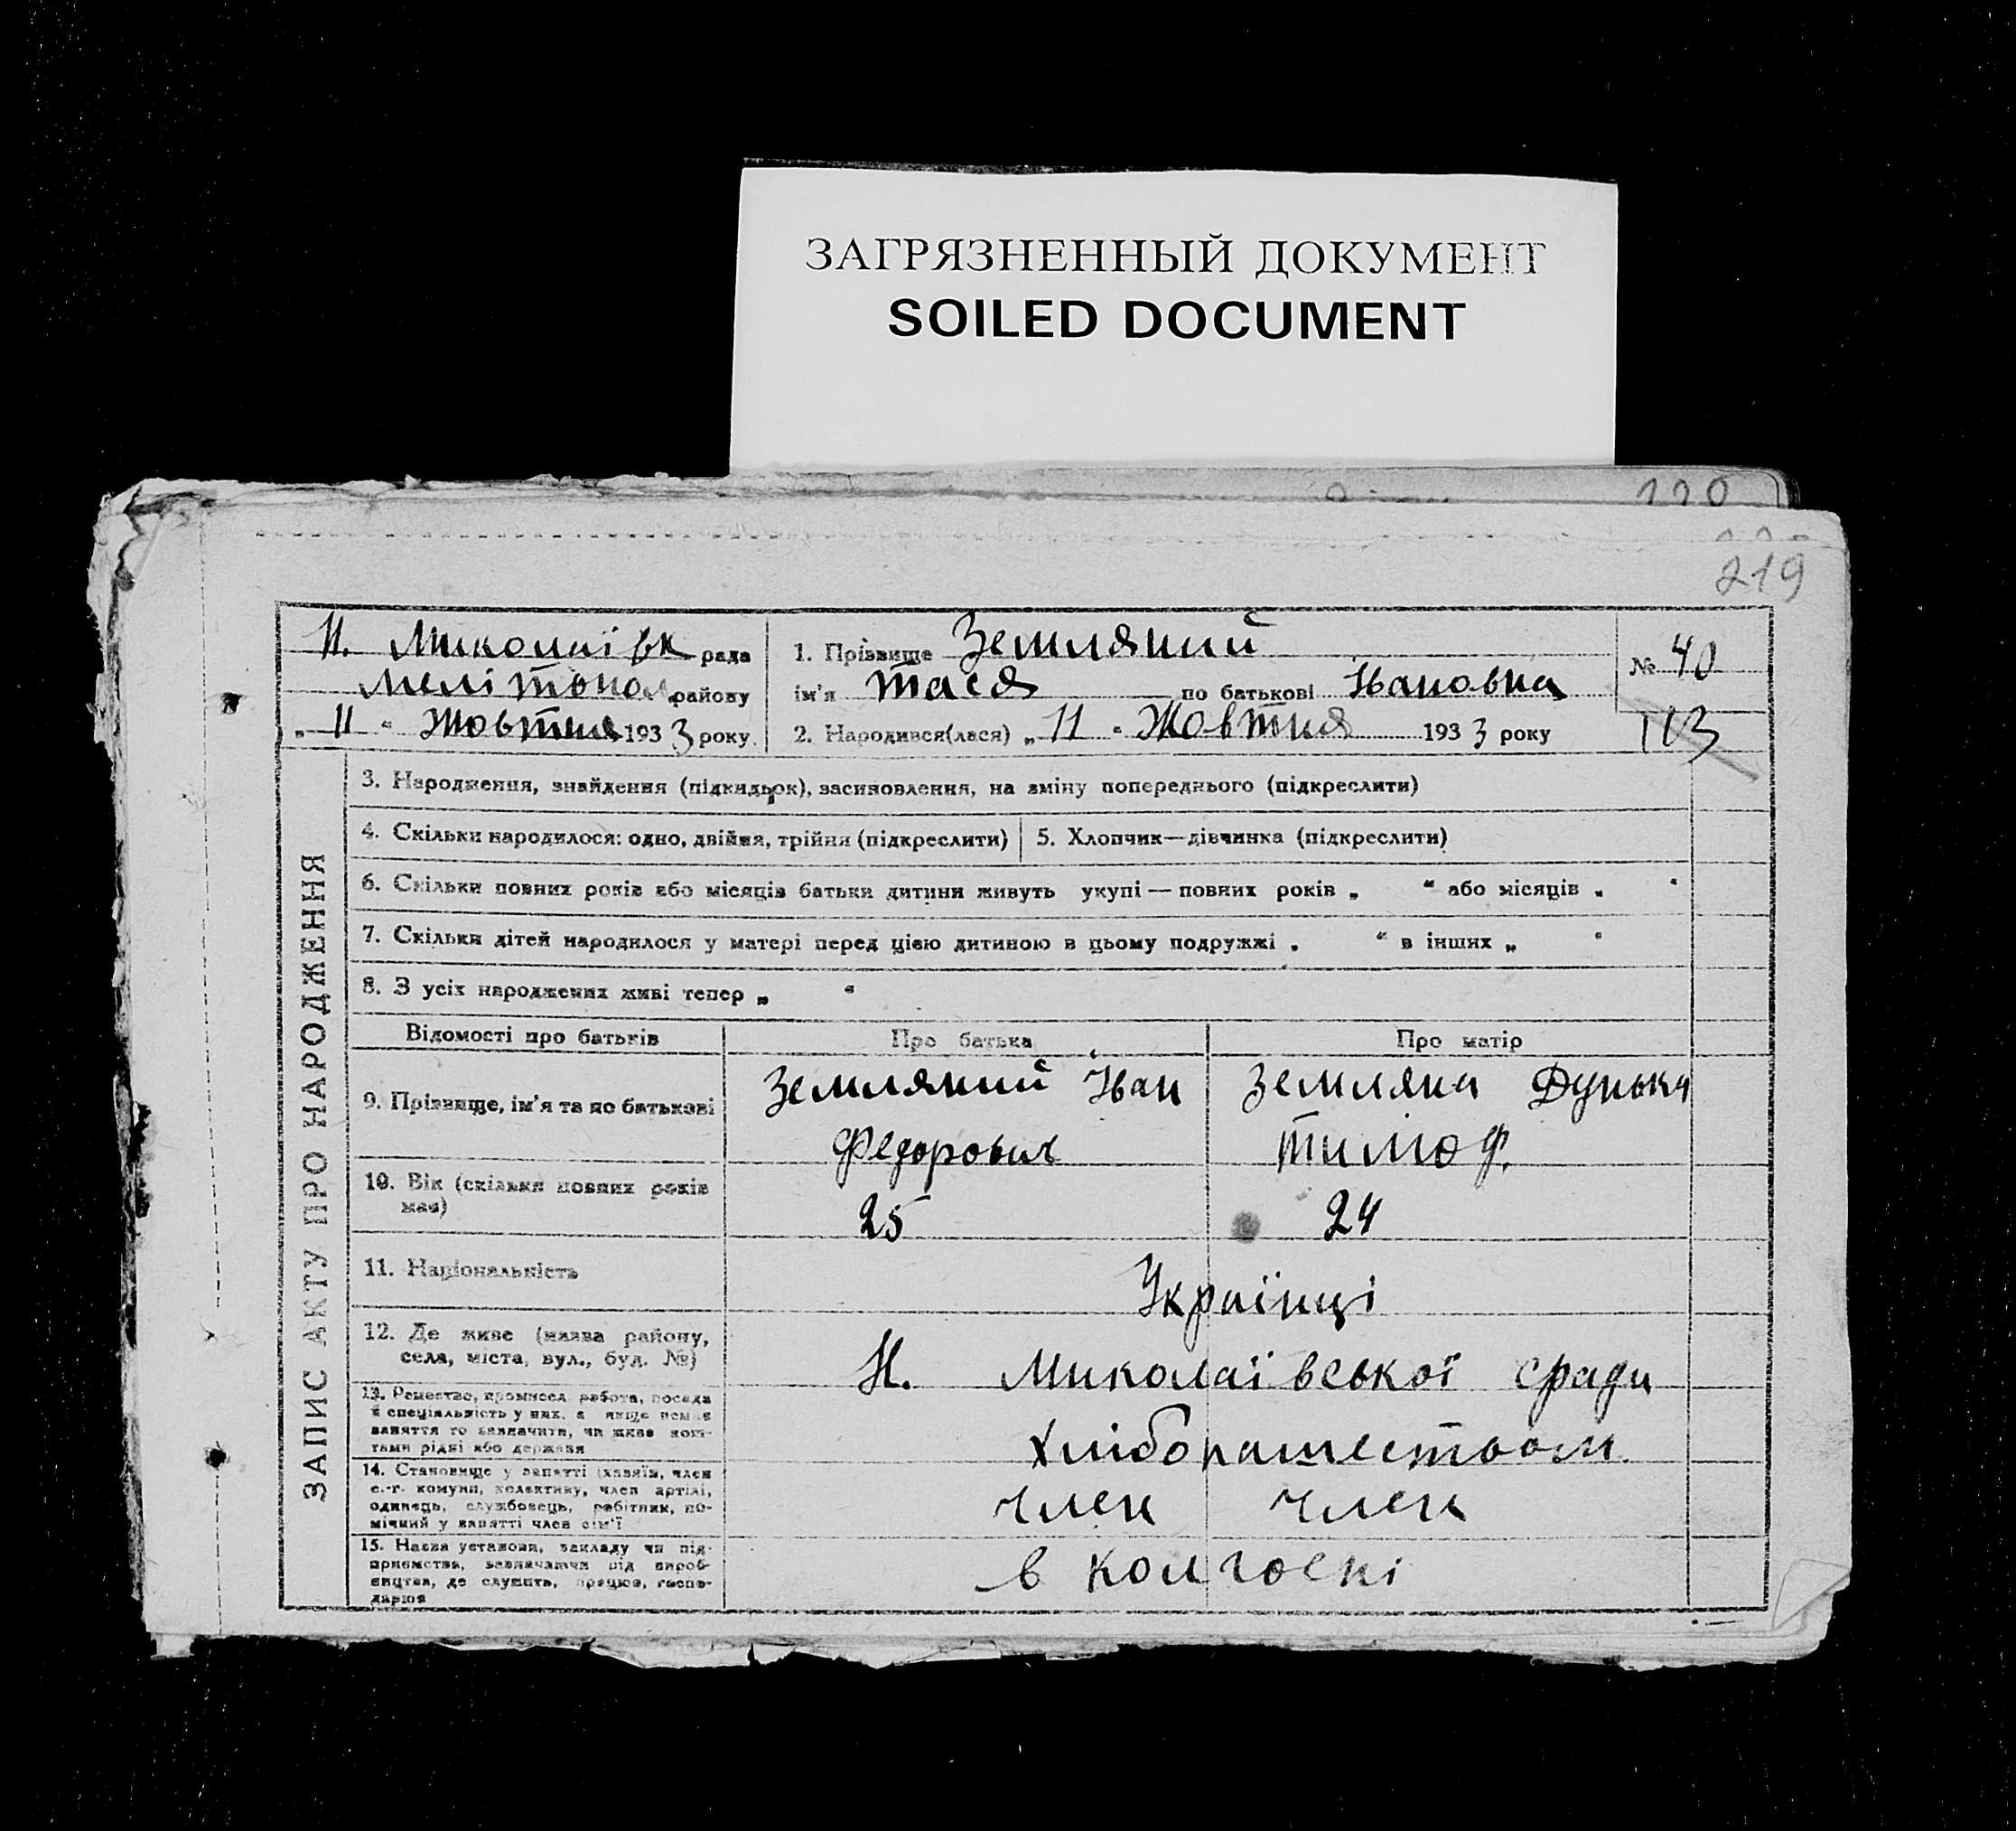 ЗАГРЯЗНЕННЫЙ ДОКУМЕНТ
SOILED DOCUMENT
220
219
Н. Миколаївк рада
Мелітопол району
„ 11 “ Жовтня 1933 року
1. Прізвище Земляний
ім'я Тася по батькові Івановна
2. Народився(лася) „ 11 “ Жовтня 1933 року
№ 40
113
ЗАПИС АКТУ ПРО НАРОДЖЕННЯ
3. Народження, знайдення (підкидьок), засиновлення, на зміну попереднього (підкреслити)
4. Скільки народилося: одно, двійня, трійня (підкреслити)
5. Хлопчик—дівчинка (підкреслити)
6. Скільки повних років або місяців батьки дитини живуть укупі — повних років „ “ або місяців „ “
7. Скільки дітей народилося у матері перед цією дитиною в цьому подружжі „ “ в інших „ “
8. З усіх народжених живі тепер „ “
Відомості про батьків
Про батька
Про матір
9. Прізвище, ім'я та по батькові
Земляний Іван
Федорович
Земляна Дунька
Тимоф.
10. Вік (скільки повних років
має)
25
24
11. Національність
Українці
12. Де живе (назва району,
села, міста, вул., буд. №)
Н. Миколаївської сради
13. Ремество, промисел, робота, посада
й спеціяльність у них, а якщо немає
заняття то зазначити, чи живе кош-
тами рідні або держави
Хліборашеством
14. Становище у занятті (хазяїн, член
с.-г. комуни, колективу, член артілі,
одинець, службовець, робітник, по-
мічний у занятті член сім'ї
член член
15. Назва установи, закладу чи під-
приємства, зазначаючи від вироб-
ництва, де служить, працює, госпо-
дарює
в колгоспі